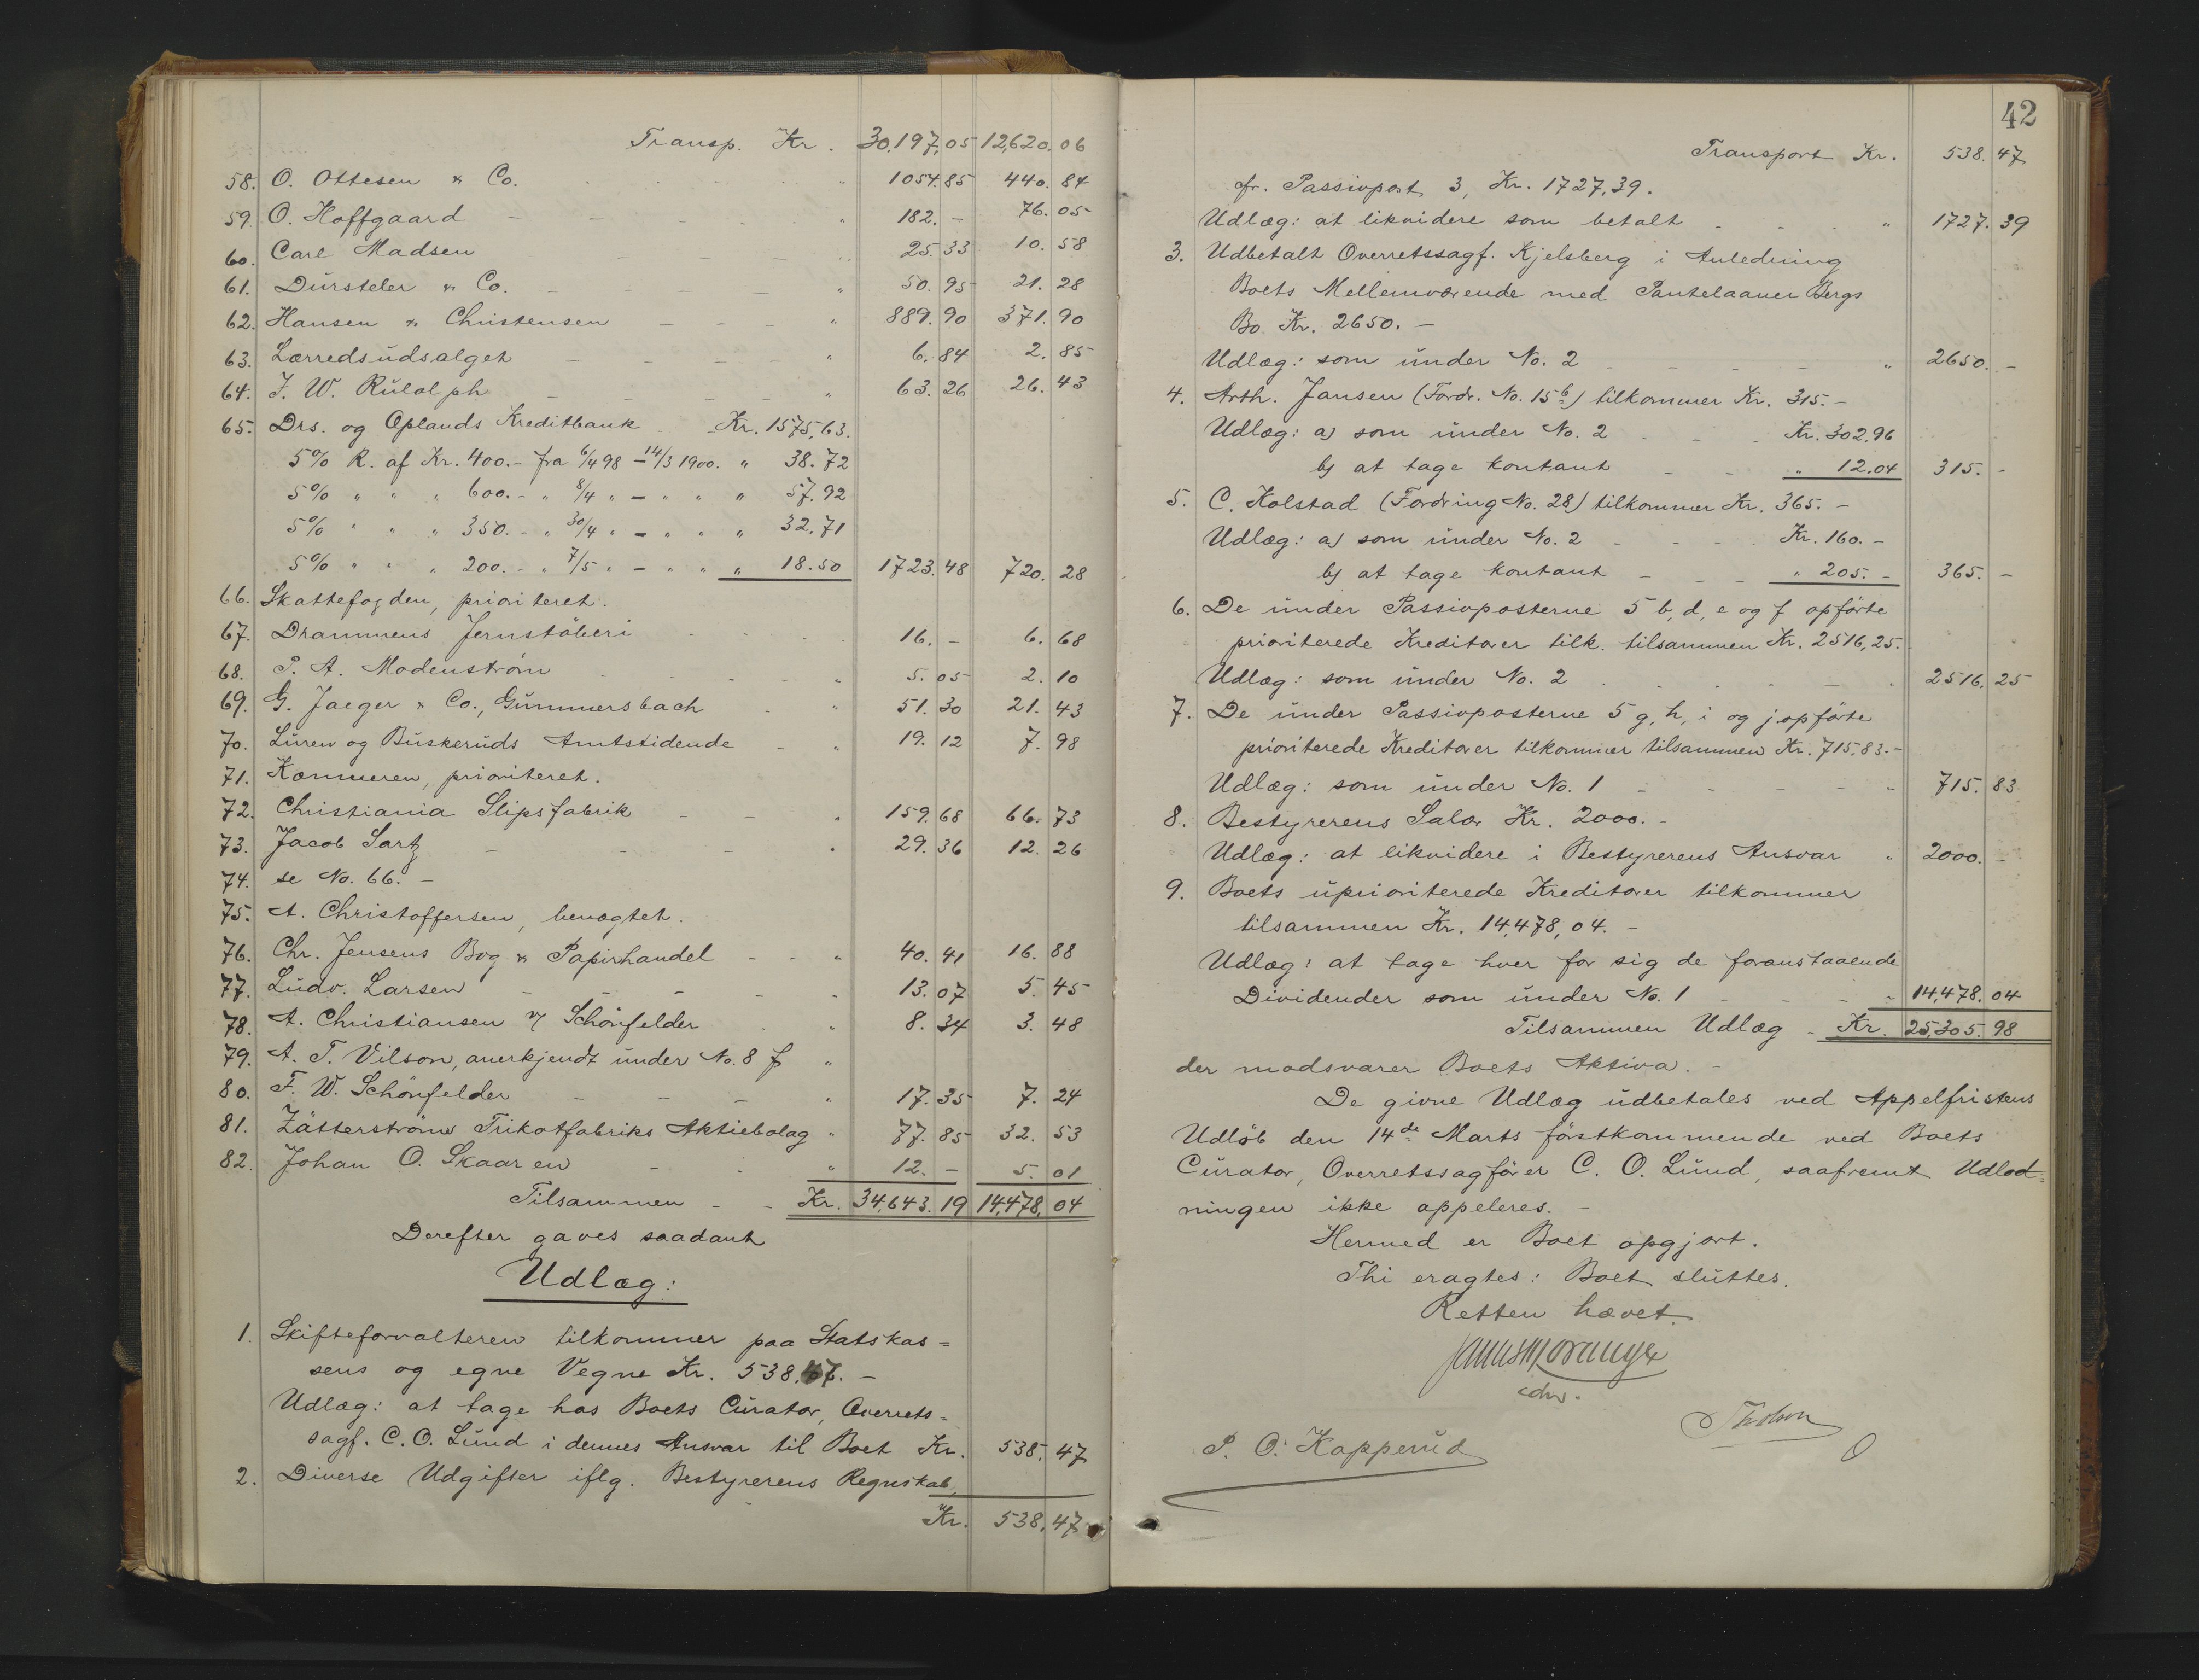 Transp. Kr. 30,197,05 12,620,06
58. O. Ottesen & Co. " 1054.85 440.84
59. O. Hoffgaard " 182.- 76.05
60. Carl Madsen " 25.33 10.58
61. Dürsteler & Co. " 50.95 21.28
62. Hansen & Christensen " 889.90 371.90
63. Lærredsudsalget " 6.84 2.85
64. F. W. Rulolph " 63.26 26.43
65. Drs. og Oplands Kreditbank Kr. 1575,63.
5% R. af Kr. 400.- fra 6/4 98 - 14/3 1900. " 38.72
5% " " " 600.- " 8/4 " - " " " 57.92
5% " " " 350.- " 30/4 " - " " " 32.71
5% " " " 200.- " 7/5 " - " " " 18.50 1723.48 720.28
66. Skattefogden, prioriteret.
67. Drammens Jernstøberi 16.- 6.68
68. P. A. Modenström " 5.05 2.10
69. G. Jaeger & Co., Gummersbach " 51.30 21.43
70. Buskeruds Amtstidende " 19.12 7.98
71. Kæmneren, prioriteret.
72. Christiania Slipsfabrik " 159.68 66.73
73. Jacob Sartz " 29.36 12.26
74. se No. 66. -
75. A. Christoffersen, benægtet.
76. Chr. Jensens Bog & Papirhandel " 40.41 16.88
77. Ludv. Larsen " 13.07 5.45
78. A. Christiansen v/ Schönfelder " 8.34 3.48
79. A. T. Vilson, anerkjendt under No. 8 f "
80. F. W. Schönfelder " 17.35 7.24
81. Zätterströms Trikotfabriks Aktiebolag " 77.85 32.53
82. Johan O. Skaaren " 12.- 5.01
Tilsammen - - Kr. 34,643.19 14,478,04
Derefter gaves saadant
Udlæg:
1. Skifteforvalteren tilkommer paa Statskas=
sens og egne Vegne Kr. 538,47. -
Udlæg: at tage hos Boets Curator, Overrets=
sagf. C. O. Lund i dennes Ansvar til Boet Kr. 538,47
2. Diverse Udgifter iflg. Bestyrerens Regnskab,
Kr. 538,47
42
Transport Kr. 538.47
cfr. Passivpost 3, Kr. 1727,39.
Udlæg: at likvidere som betalt " 1727.39
3. Udbetalt Overretssagf. Kjelsberg i Anledning
Boets Mellemværende med Pantelaaner Bergs
Bo Kr. 2650. -
Udlæg: som under No. 2 " 2650.-
4. Arth. Jansen (Fordr. No. 15 b) tilkommer Kr. 315.-
Udlæg: a) som under No. 2 Kr. 302.96
b) at tage kontant " 12.04 315.-
5. C. Kolstad (Fordring No. 28) tilkommer Kr. 365. -
Udlæg: a) som under No. 2 Kr. 160.-
b) at tage kontant " 205.- 365.-
6. De under Passivposterne 5 b, d, e og f opførte
prioriterede Kreditorer tilk. tilsammen Kr. 2516,25.
Udlæg: som under No. 2 2516.25
7. De under Passivposterne 5 g, h, i og j opførte
prioriterede Kreditorer tilkommer tilsammen Kr. 715,83.-
Udlæg: som under No. 1 " 715.83
8. Bestyrerens Salær Kr. 2000.-
Udlæg: at likvidere i Bestyrerens Ansvar " 2000.-
9. Boets uprioriterede Kreditorer tilkommer
tilsammen Kr. 14,478,04. -
Udlæg: at tage hver for sig de foranstaaende
Dividender som under No. 1 " 14,478.04
Tilsammen Udlæg - Kr. 25,305.98
der modsvarer Boets Aktiva. -
De givne Udlæg udbetales ved Appelfristens
Udløb den 14de Marts førstkommende ved Boets
Curator, Overretssagfører C. O. Lund, saafremt Udlod=
ningen ikke appeleres. -
Hermed er Boet opgjort.
Thi eragtes: Boet sluttes.
Retten hævet.
P. O. Kapperud